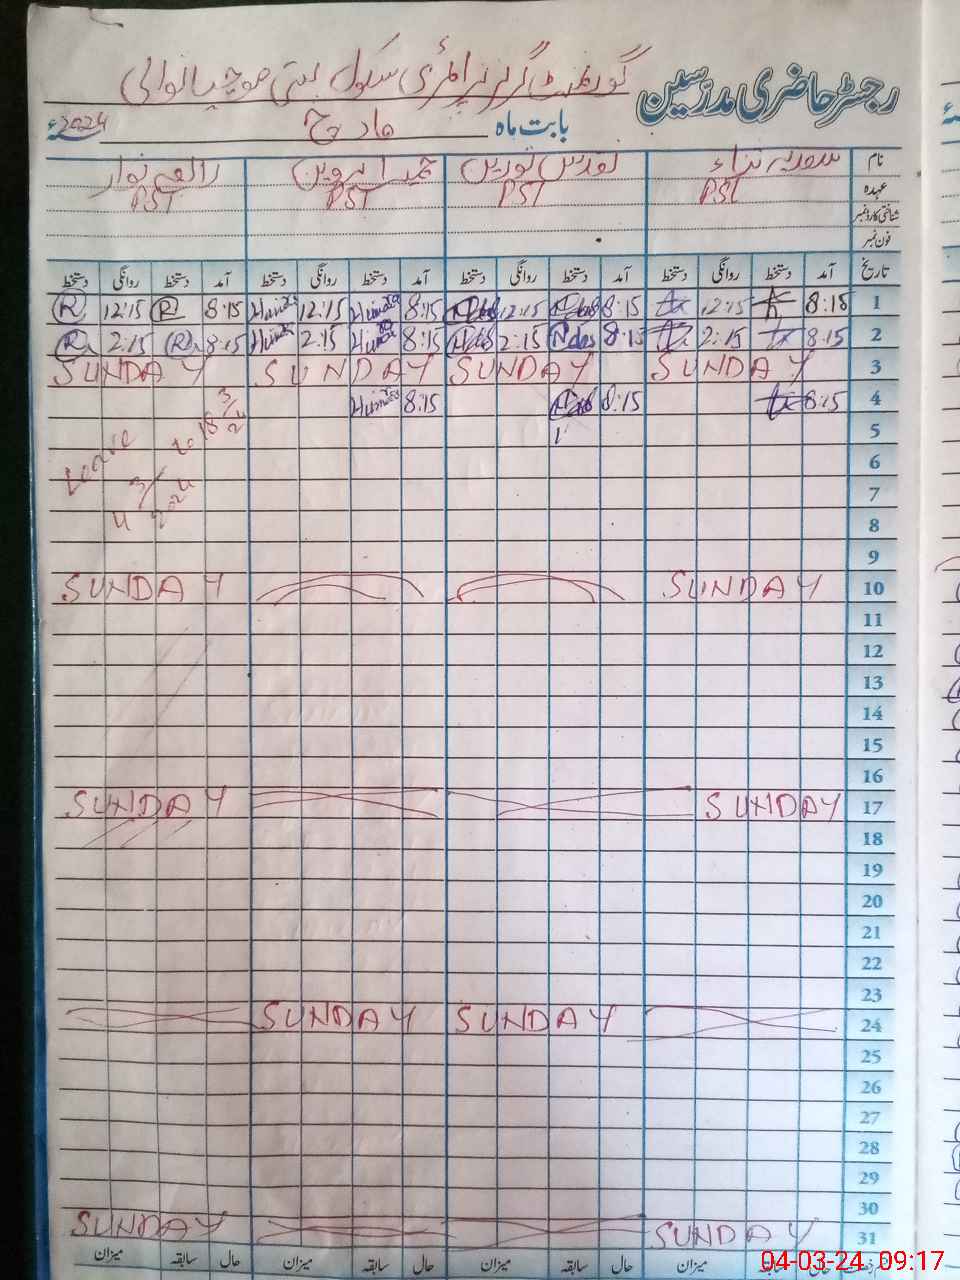 رجسٹر حاضری مدرّسین گورنمنٹ گرلز پرائمری سکول بستی موچیانوالی
بابت ماہ مارچ 2024ء
نام سمیہ ثناء تقدیس نورین حمیرا پروین رابعہ نواز
عہدہ PST PST PST PST
شناختی کارڈ نمبر
فون نمبر
تاریخ آمد دستخط روانگی دستخط آمد دستخط روانگی دستخط آمد دستخط روانگی دستخط آمد دستخط روانگی دستخط
1 8:15 12:15 8:15 12:15 8:15 12:15 8:15 12:15
2 8:15 2:15 8:15 2:15 8:15 2:15 8:15 2:15
3 SUNDAY SUNDAY SUNDAY SUNDAY
4 8:15 8:15 8:15
5 Leave 4/3/2024 to 18/3/24
6
7
8
9
10 SUNDAY SUNDAY
11
12
13
14
15
16
17 SUNDAY SUNDAY
18
19
20
21
22
23
24 SUNDAY SUNDAY
25
26
27
28
29
30
31 SUNDAY SUNDAY
حال سابقہ میزان حال سابقہ میزان حال سابقہ میزان
04-03-24 09:17